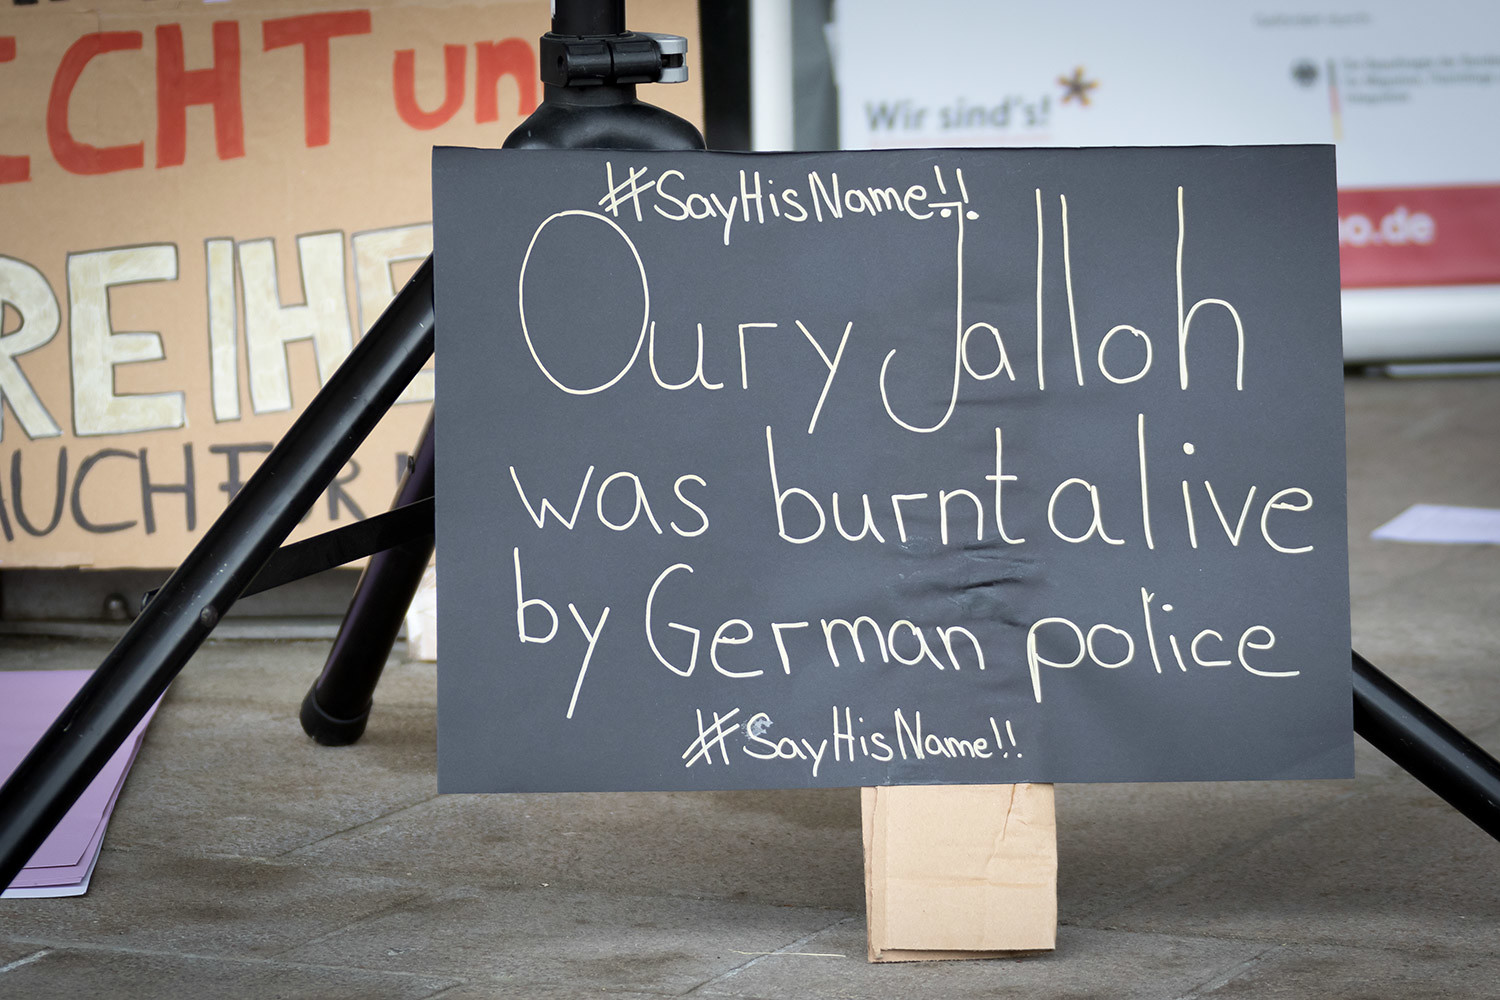 ECHT un
REIHE
AUCH FÜR
Wir sind's!
o.de
#SayHisName!!
Oury Jalloh
was burnt alive
by German police
#SayHisName!!